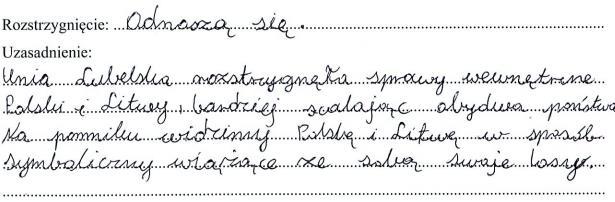 Rozstrzygnięcie: Odnoszą się.
Uzasadnienie:
Unia Lubelska rozstrzygnęła sprawy wewnętrzne
Polski i Litwy, bardziej scalając obydwa państwa
Na pomniku widzimy Polskę i Litwę w sposób
symboliczny wiążące ze sobą swoje losy.